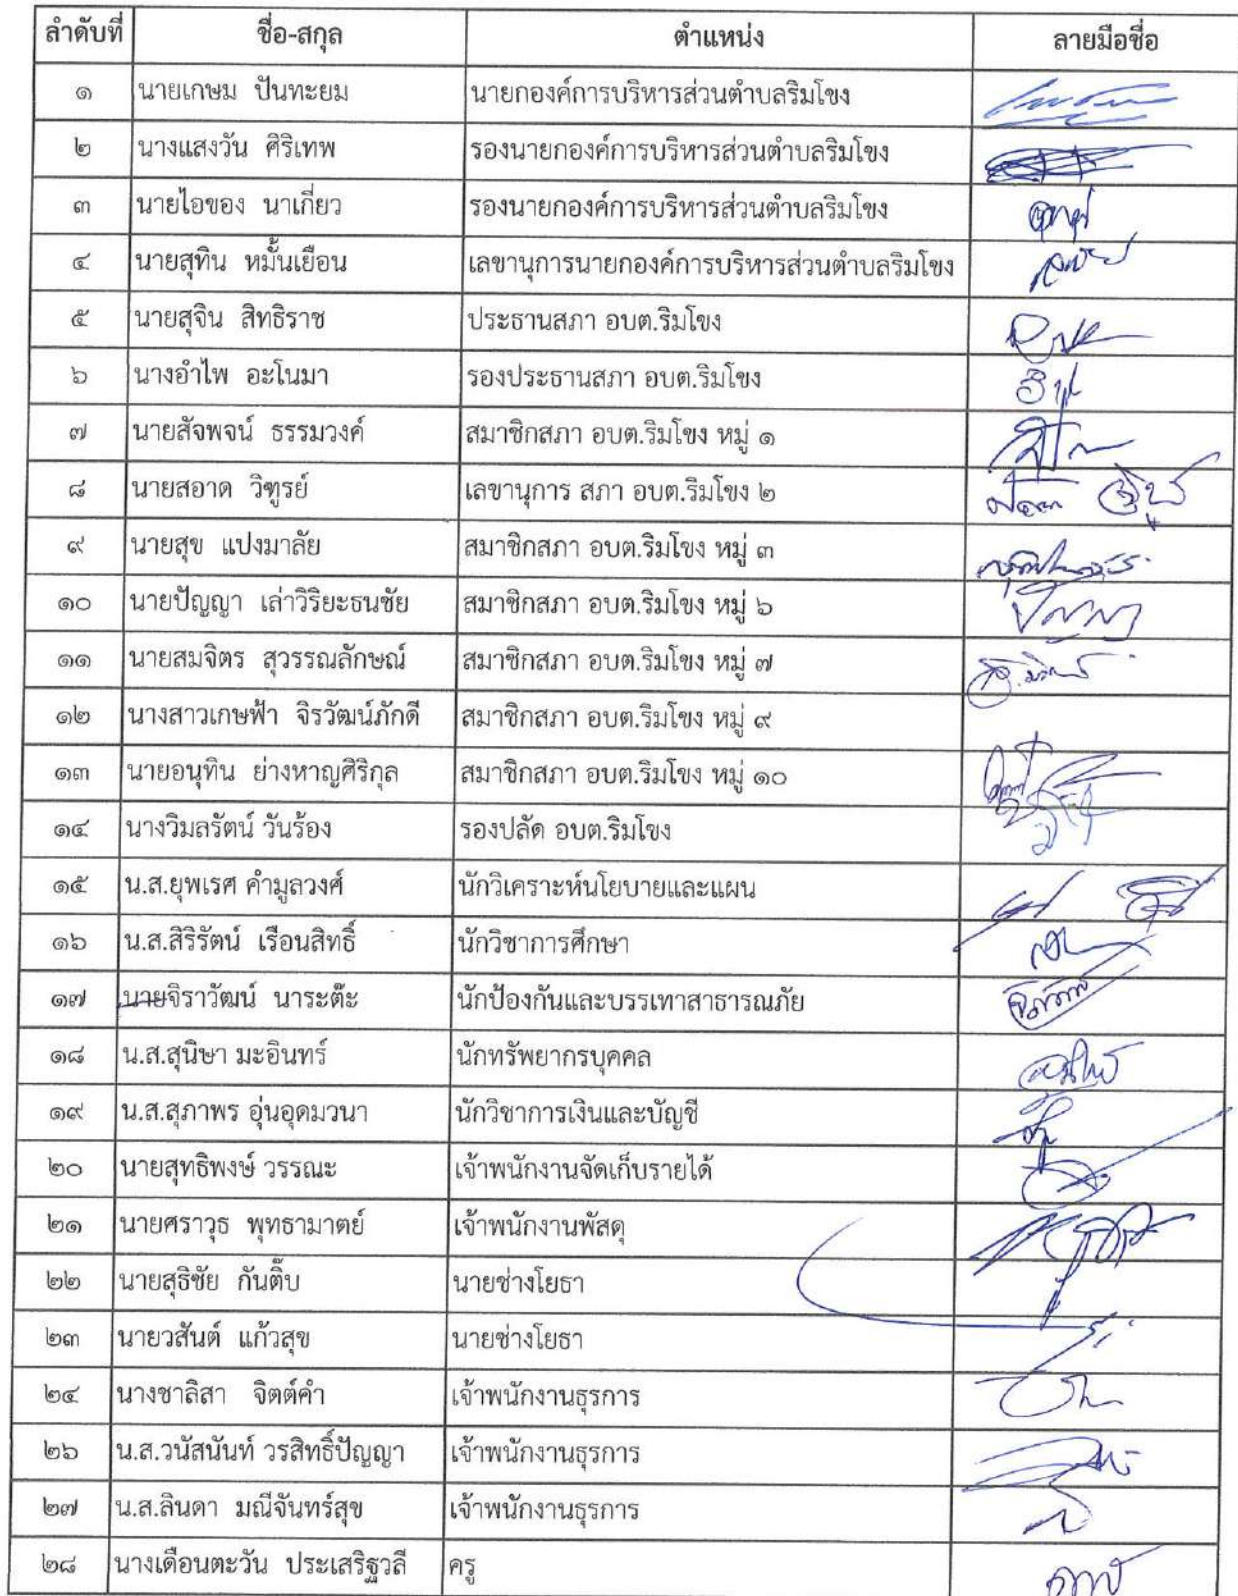 ลำดับที่ ชื่อ-สกุล ตำแหน่ง ลายมือชื่อ
๑ นายเกษม ปันทะยม นายกองค์การบริหารส่วนตำบลริมโขง
๒ นางแสงวัน ศิริเทพ รองนายกองค์การบริหารส่วนตำบลริมโขง
๓ นายไอของ นาเกี่ยว รองนายกองค์การบริหารส่วนตำบลริมโขง
๔ นายสุทิน หมั้นเยือน เลขานุการนายกองค์การบริหารส่วนตำบลริมโขง
๕ นายสุจิน สิทธิราช ประธานสภา อบต.ริมโขง
๖ นางอำไพ อะโนมา รองประธานสภา อบต.ริมโขง
๗ นายสัจพจน์ ธรรมวงค์ สมาชิกสภา อบต.ริมโขง หมู่ ๑
๘ นายสอาด วิฑูรย์ เลขานุการ สภา อบต.ริมโขง ๒
๙ นายสุข แปงมาลัย สมาชิกสภา อบต.ริมโขง หมู่ ๓
๑๐ นายปัญญา เล่าวิริยะธนชัย สมาชิกสภา อบต.ริมโขง หมู่ ๖ ปัญญา
๑๑ นายสมจิตร สุวรรณลักษณ์ สมาชิกสภา อบต.ริมโขง หมู่ ๗
๑๒ นางสาวเกษฟ้า จิรวัฒน์ภักดี สมาชิกสภา อบต.ริมโขง หมู่ ๙
๑๓ นายอนุทิน ย่างหาญศิริกุล สมาชิกสภา อบต.ริมโขง หมู่ ๑๐
๑๔ นางวิมลรัตน์ วันร้อง รองปลัด อบต.ริมโขง
๑๕ น.ส.ยุพเรศ คำมูลวงศ์ นักวิเคราะห์นโยบายและแผน
๑๖ น.ส.สิริรัตน์ เรือนสิทธิ์ นักวิชาการศึกษา
๑๗ นายจิราวัฒน์ นาระต๊ะ นักป้องกันและบรรเทาสาธารณภัย
๑๘ น.ส.สุนิษา มะอินทร์ นักทรัพยากรบุคคล
๑๙ น.ส.สุภาพร อุ่นอุดมวนา นักวิชาการเงินและบัญชี
๒๐ นายสุทธิพงษ์ วรรณะ เจ้าพนักงานจัดเก็บรายได้
๒๑ นายศราวุธ พุทธามาตย์ เจ้าพนักงานพัสดุ
๒๒ นายสุธิชัย กันติ๊บ นายช่างโยธา
๒๓ นายวสันต์ แก้วสุข นายช่างโยธา
๒๔ นางชาลิสา จิตต์คำ เจ้าพนักงานธุรการ
๒๖ น.ส.วนัสนันท์ วรสิทธิ์ปัญญา เจ้าพนักงานธุรการ
๒๗ น.ส.ลินดา มณีจันทร์สุข เจ้าพนักงานธุรการ
๒๘ นางเดือนตะวัน ประเสริฐวลี ครู